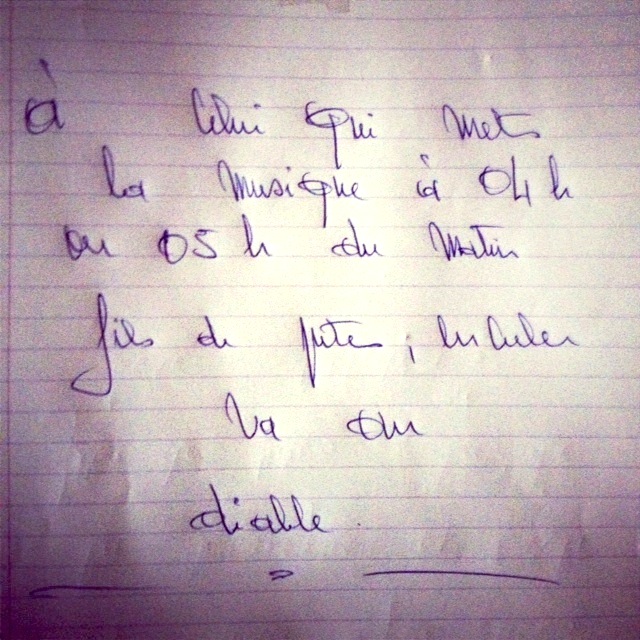 à celui qui mets
la musique à 04 h
ou 05 h du matin
fils de putes, enculer
va au
diable